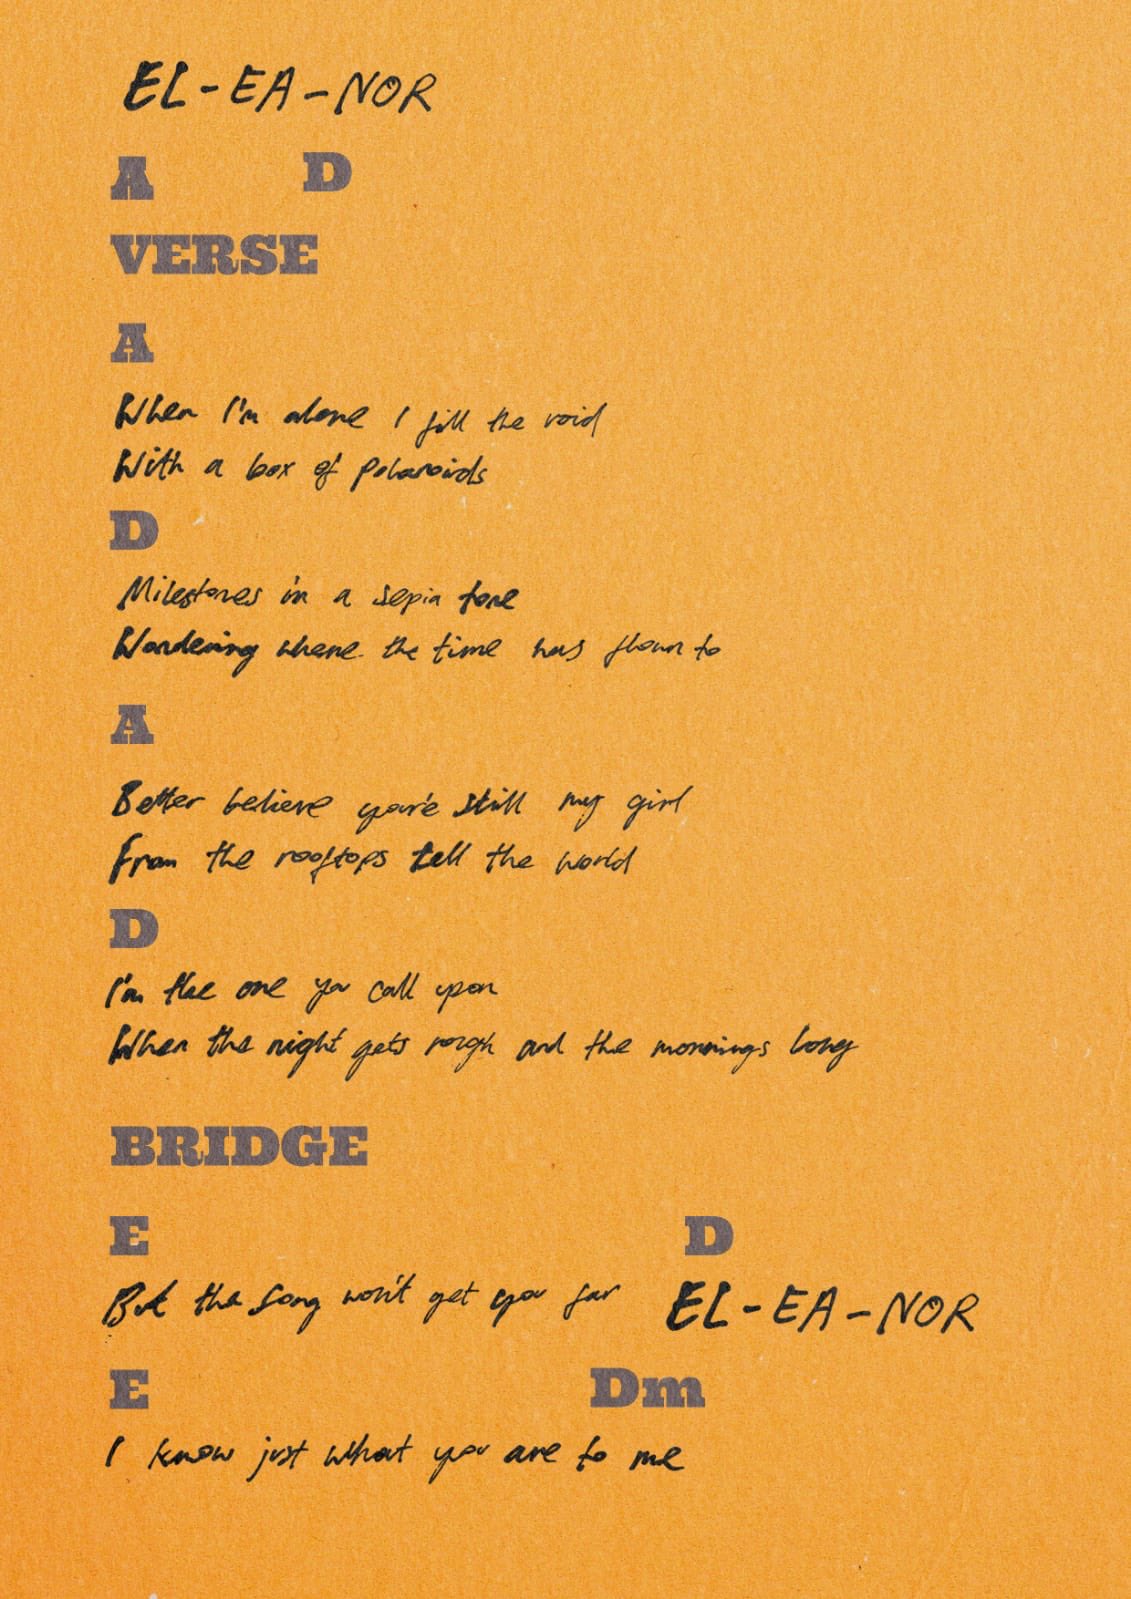 EL-EA-NOR
A D
VERSE
A
When I'm alone I fill the void
With a box of polaroids
D
Milestones in a sepia tone
Wondering where the time has flown to
A
Better believe you're still my girl
From the rooftops tell the world
D
I'm the one you call upon
When the night gets rough and the mornings long
BRIDGE
E D
But the song won't get you far EL-EA-NOR
E Dm
I know just what you are to me